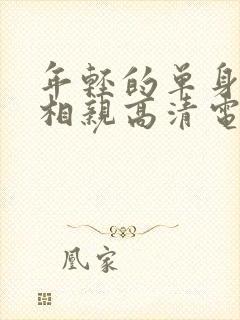 年轻的单身
相親高清電
凰家